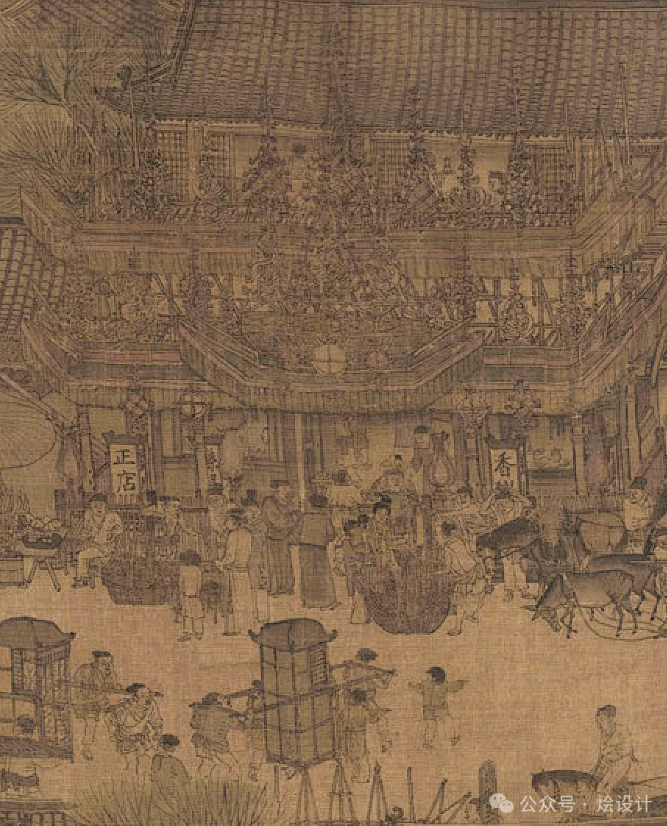 正店
香
公众号 · 烩设计